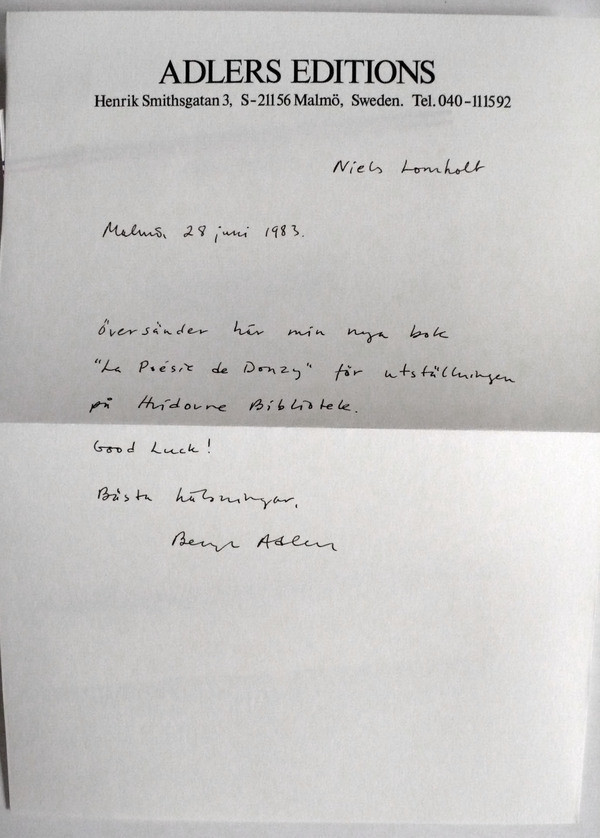 ADLERS EDITIONS
Henrik Smithsgatan 3, S-211 56 Malmö, Sweden. Tel. 040-111592
Niels Lomholt
Malmö, 28 juni 1983.
Översänder här min nya bok
"La Poésie de Donzy" för utställningen
på Hvidovre Bibliotek.
Good Luck!
Bästa hälsningar,
Bengt Adlers